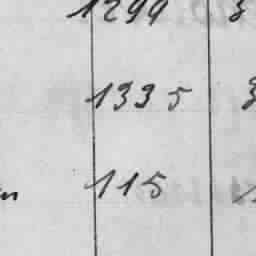 1299 3
1335 3
115